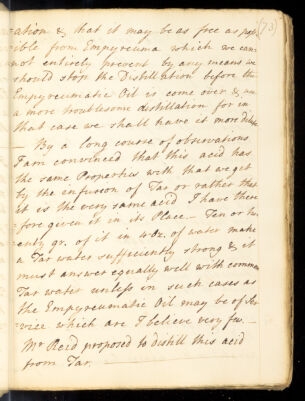 73)
cation &, that it may be as free as poss
ible from Empyreuma which we can
not entirely prevent by any means we
should stop the Distillation before the
Empyreumatic Oil is come over &
a more troublesome distillation for in
that case we shall have it more
— By a long course of observations
I am convinced that this acid has
the same Properties with that we get
by the infusion of Tar or rather that
it is the very same acid I have there
fore given it in its Place — Ten or
enty gr. of it in Oz. of water make
a Tar water sufficiently strong & it
must answer equally well with common
Tar water unless in such cases as
the Empyreumatic Oil may be of Ser
vice which are I believe very few. —
Mr Reid proposed to distill this acid
from Tar. —